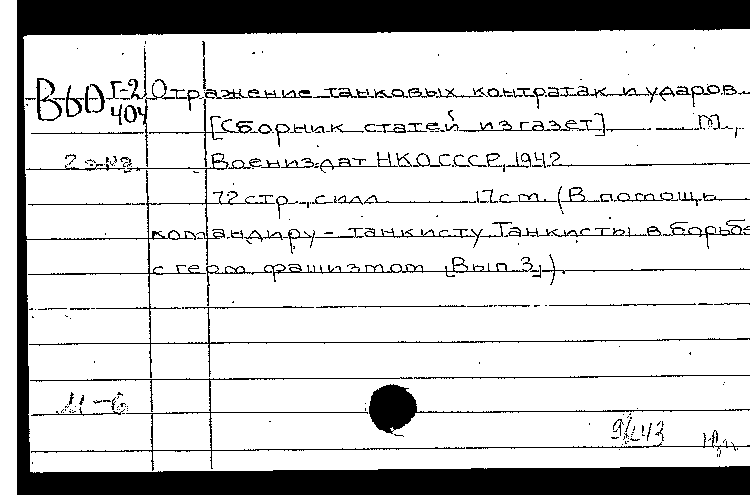 В60 Г-2/404 Отражение танковых контратак и ударов.
[Сборник статей из газет]. М.,
2 экз. Воениздат НКО СССР, 1942
72 стр., с илл. 17 см. (В помощь
командиру-танкисту. Танкисты в борьбе
с герм. фашизмом [Вып. 3]).
11-6
9/143